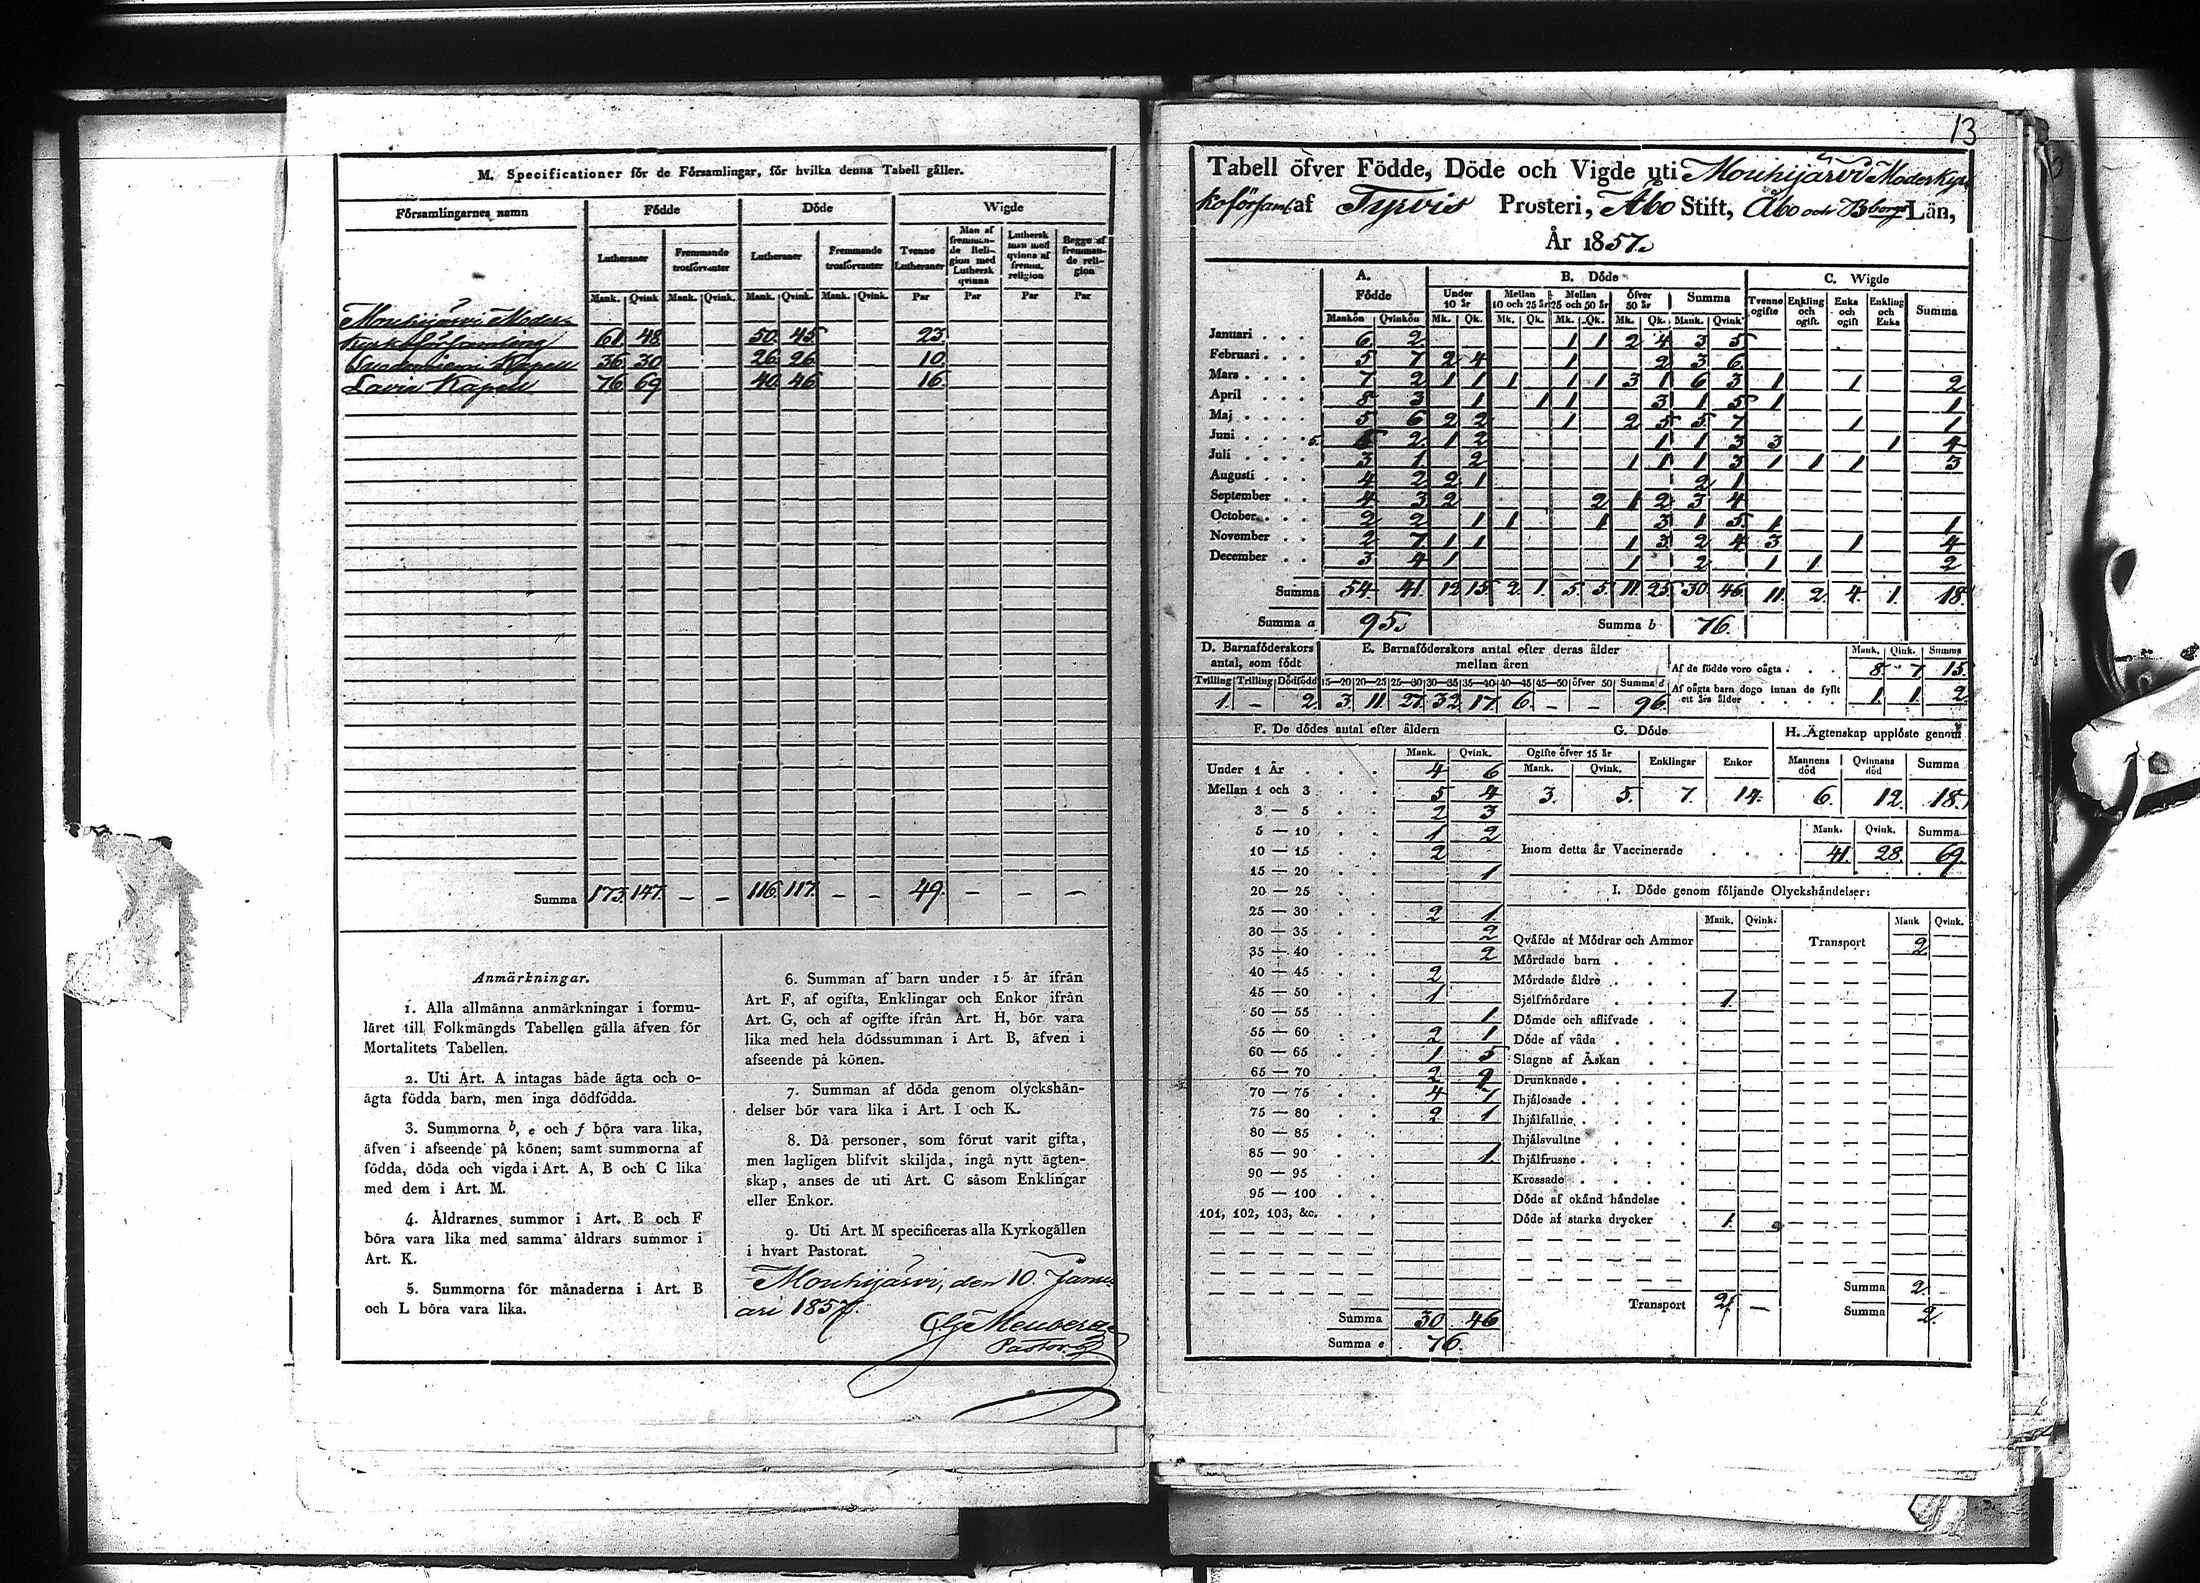 M. Specificationer för de Församlingar, för hvilka denna Tabell gäller.
Församlingarnes namn | Födde | Döde | Wigde
Lutheraner | Fremmande trosförvanter | Lutheraner | Fremmande trosförvanter | Tvenne Lutheraner | Man af fremman-de Reli-gion med Luthersk qvinna | Luthersk man med qvinna af fremm. religion | Begge af fremman-de reli-gion
Mank. Qvink Mank. Qvink. Mank. Qvink. Mank. Qvink. Par Par Par Par
Mouhijärvi Moder-
kyrkoförsamling 61. 48. 50. 45. 23.
Suodenniemi Kapell 36. 30 26. 26. 10.
Lavia Kapell 76 69 40. 46 16.
Summa 173. 147. – – 116. 117. – – 49. – – –
Anmärkningar.
1. Alla allmänna anmärkningar i formu-
läret till Folkmängds Tabellen gälla äfven för
Mortalitets Tabellen.
2. Uti Art. A intagas både ägta och o-
ägta födda barn, men inga dödfödda.
3. Summorna b, e och f böra vara lika,
äfven i afseende på könen; samt summorna af
födda, döda och vigda i Art. A, B och C lika
med dem i Art. M.
4. Åldrarnes summor i Art. B och F
böra vara lika med samma åldrars summor i
Art. K.
5. Summorna för månaderna i Art. B
och L böra vara lika.
6. Summan af barn under 15 år ifrån
Art. F, af ogifta, Enklingar och Enkor ifrån
Art. G, och af ogifte ifrån Art. H, bör vara
lika med hela dödssumman i Art. B, äfven i
afseende på könen.
7. Summan af döda genom olyckshän-
delser bör vara lika i Art. I och K.
8. Då personer, som förut varit gifta,
men lagligen blifvit skiljda, ingå nytt ägten-
skap, anses de uti Art. C såsom Enklingar
eller Enkor.
9. Uti Art. M specificeras alla Kyrkogällen
i hvart Pastorat.
Mouhijärvi, den 10. Janu-
ari 1857.
Pastor.
13
Tabell öfver Födde, Döde och Vigde uti Mouhijärvi Moderkyr-
koförsaml. af Tyrvis Prosteri, Åbo Stift, Åbo och Bborgs Län,
År 1857.
A. Födde | B. Döde | C. Wigde
Under 10 år | Mellan 10 och 25 år | Mellan 25 och 50 år | Öfver 50 år | Summa | Tvenne ogifte | Enkling och ogift. | Enka och ogift | Enkling och Enka | Summa
Mankön Qvinkön Mk. Qk. Mk. Qk. Mk. Qk. Mk. Qk. Mank. Qvink
Januari 6 2 1 1 2 4 3 5
Februari 5 7 2 4 1 2 3 6
Mars 7 2 1 1 1 1 1 3 1 6 3 1 1 2
April 8 3 1 1 1 3 1 5 1 1
Maj 5 6 2 2 1 2 5 5 7 1 1
Juni 5. 2 1 2 1 1 3 3 1 4
Juli 3 1 2 1 1 1 3 1 1 1 3
Augusti 4 2 2 1 2 1
September 4 3 2 2 1 2 3 4
October 2 2 1 1 1 3 1 5 1 1
November 2 7 1 1 1 3 2 4 3 1 4
December 3 4 1 1 2 1 1 2
Summa 54 41. 12 15. 2. 1. 5 5. 11. 25 30. 46. 11. 2. 4. 1. 18.
Summa a 95. Summa b 76.
D. Barnaföderskors antal, som födt
Tvilling Trilling Dödfödd
1. – 2.
E. Barnaföderskors antal efter deras ålder mellan åren
15—20 20—25 25—30 30—35 35—40 40—45 45—50 öfver 50 Summa d
3. 11. 27. 32. 17. 6. – – 96.
Mank. Qink. Summa
Af de födde voro oägta 8 7 15.
Af oägta barn dogo innan de fyllt ett års ålder 1. 1. 2.
F. De dödes antal efter åldern
Mank. Qvink.
Under 1 År 4 6
Mellan 1 och 3 5 4
3 — 5 2 3
5 — 10 1 2
10 — 15 2
15 — 20 1
20 — 25
25 — 30 2 1.
30 — 35 2
35 — 40 2
40 — 45 2
45 — 50 1
50 — 55 1
55 — 60 2 1
60 — 65 1 5
65 — 70 2 9
70 — 75 4 7
75 — 80 2 1
80 — 85
85 — 90 1.
90 — 95
95 — 100
101, 102, 103, &c.
Summa 30 46
Summa e 76.
G. Döde
Ogifte öfver 15 år | Enklingar | Enkor
Mank. Qvink.
3. 5. 7. 14.
H. Ägtenskap upplöste genom
Mannens död | Qvinnans död | Summa
6. 12. 18.
Mank. Qvink. Summa
Inom detta år Vaccinerade 41. 28. 69.
I. Döde genom följande Olyckshändelser:
Mank. Qvink. Mank Qvink.
Qväfde af Mödrar och Ammor
Mördade barn
Mördade äldre
Sjelfmördare 1.
Dömde och aflifvade
Döde af våda
Slagne af Åskan
Drunknade
Ihjälosade
Ihjälfallne
Ihjälsvultne
Ihjälfrusne
Krossade
Döde af okänd händelse
Döde af starka drycker 1.
Transport 2. –
Transport 2
Summa 2.
Summa 2.